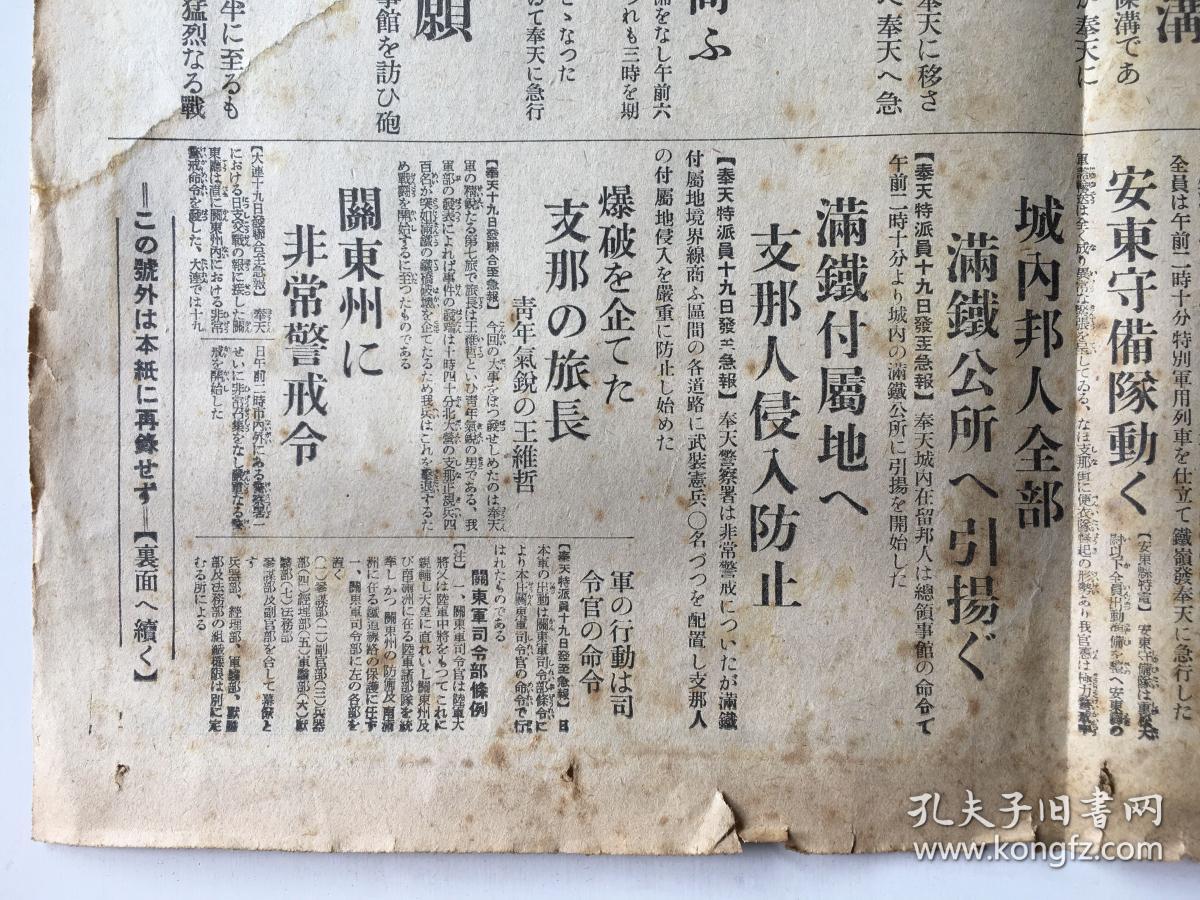 溝
條溝であ
が奉天に
奉天に移さ
奉天へ急
問ふ
備をなし午前六
つれも三時を期
とゝなつた
めて奉天に急行
願
事館を訪ひ砲
半に至るも
猛烈なる戰
全員は午前二時十分特別軍用列車を仕立て鐵嶺發奉天に急行した
安東守備隊動く
城內邦人全部
滿鐵公所へ引揚ぐ
【奉天特派員十九日發至急報】奉天城內在留邦人は總領事館の命令で
午前二時十分より城內の滿鐵公所に引揚を開始した
滿鐵付屬地へ
支那人侵入防止
【奉天特派員十九日發至急報】奉天警察署は非常警戒についたが滿鐵
付屬地境界線商ふ區間の各道路に武裝憲兵〇名づつを配置し支那人
の付屬地侵入を嚴重に防止し始めた
爆破を企てた
支那の旅長
靑年氣銳の王維哲
【奉天十九日發聯合至急報】今回の大事をぼつ發せしめたのは奉天
軍の精銳たる第七旅で旅長は王維哲といひ靑年氣銳の男である、我
軍部の發表によれば事件の發端は十時四十分北大營の支那正規兵四
百名が突如滿鐵の鐵橋破壞を企てたるため我兵はこれを擊退するた
め戰鬪を開始するに至つたものである
關東州に
非常警戒令
【大連十九日發聯合至急報】奉天
における日支交戰の報に接した關
東廳は直に關東州內における非常
警戒命令を發した、大連では十九
日午前二時市內外にある
せいに非常召集をなし嚴重なる警
戒を開始した
軍の行動は司
令官の命令
【奉天特派員十九日發至急報】日
本軍の出動は關東軍司令部條令に
より本庄關東軍司令官の命令で行
はれたものである
關東軍司令部條例
【註】一、關東軍司令官は陸軍大
將又は陸軍中將をもつてこれに
親輔し天皇に直れいし關東州及
び南滿洲に在る陸軍諸部隊を統
率しかつ關東州の防備及南滿
洲に在る鐵道線路の保護に任ず
一、關東軍司令部に左の各部を
置く
（一）參謀部（二）副官部（三）兵器
部（四）經理部（五）軍醫部（六）獸
醫部（七）法務部
參謀部及副官部を合して幕僚と
す
兵器部、經理部、軍醫部、獸醫
部及法務部の組織權限は別に定
むる所による
＝この號外は本紙に再錄せず＝【裏面へ續く】
孔夫子旧书网
www.kongfz.com